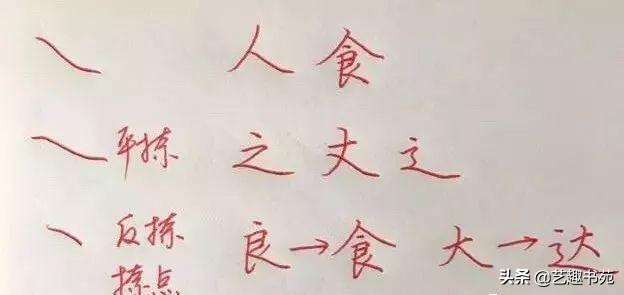 人 食
平捺 之 丈 辶
反捺 良→食 大→达
捺点
头条 @艺趣书苑